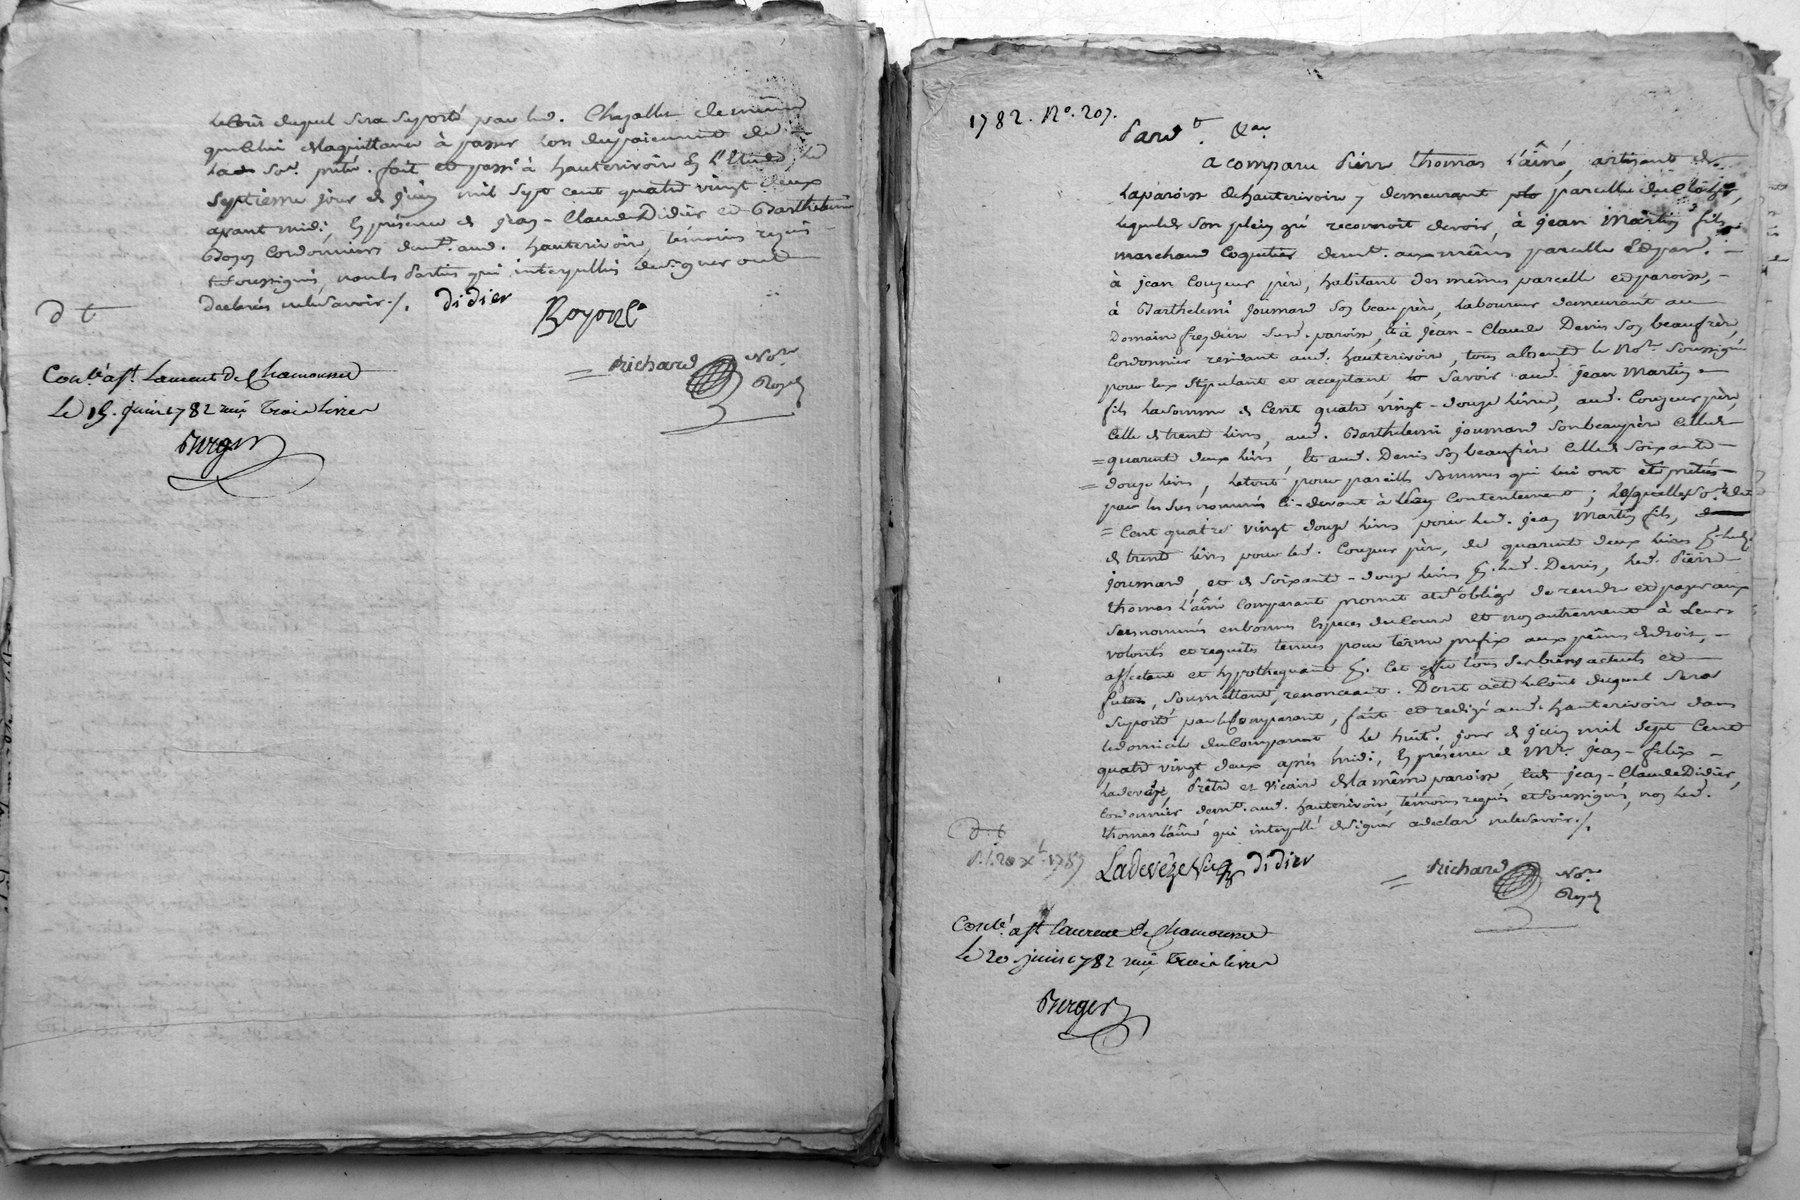 le Coût duquel sera suporté par led. Chazallet de même
que celui de la quittance à passer lors du paiement de
lad. so.e prêtée. fait et passé à hauterivoire En l'Etude, le
septieme jour de juin mil sept cent quatre vingt deux
avant midi, En présence de jean-Claude Didier et Barthelemi
Cordonniers demt. aud. hauterivoire, témoins requis
soussignés, non les parties qui interpellées de signer ont
declarés ne le savoir./. didier
d t
Richard Nore
Royal
Conlé. a St. Laurent de Chamousset
Le 15. juin 1782 reçu trois livres
Berger
1782. No. 207.
Pardt. &ar
a comparu Pierre thomas l'aîné, artisant de
la paroisse de hauterivoire y demeurant parcelle du
lequel de son plein gré reconnoit devoir, à jean Martin fils
marchand Coquetier demt. aux mêmes parcelle et par.
à jean Couzeur père, habitant des mêmes parcelle et paroisse,
à Barthelemi joumard son beaupère, laboureur demeurant au
Domaine sud. paroisse, et à jean-Claude Denis son beaufrère,
Cordonnier résidant aud. hauterivoire, tous absents le Nore. soussigné
pour Eux stipulant et acceptant savoir aud. jean Martin
fils la somme de Cent quatre vingt-douze livres, aud. Couzeur père,
Celle de trente livres, aud. Barthelemi joumard son beaupère Celle de
quarante deux livres, Et aud. Denis son beaufrère Celle de soixante
douze livres, le tout pour pareilles sommes qui lui ont été prêtées
par les susnommés Ci-devant à leur Contentement; lesquelles so.es de
Cent quatre vingt douze livres pour led. jean Martin fils,
de trente livres pour led. Couzeur père, de quarante deux livres p. led.
joumard, et de soixante-douze livres p. led. Denis, led. Pierre
thomas l'aîné Comparant promet et s'oblige de rendre et payer aux
susnommés en bonnes Especes du Cours et non autrement à leurs
volontés et requêtes tenues pour terme prefix aux peines de droit,
affectant et hypothequant p. Cet effet tous ses biens actuels et
futurs, soumettant, renonceant. Dont acte le Coût duquel sera
suporté par le Comparant, fait et redigé aud. hauterivoire dans
le domicile du Comparant le huit. jour de juin mil sept Cent
quatre vingt deux après midi, En présence de Mre. jean-felix
Ladevèze, Prêtre et Vicaire de la même paroisse, Et de jean-Claude Didier,
Cordonnier demt. aud. hauterivoire, témoins requis et soussignés, non led.
thomas l'aîné qui interpellé de signer a declaré ne le savoir./.
Ladevèze Vic. didier
Richard Nore
Royal
Conlé. a St. laurent de Chamousset
le 20 juin 1782 reçu trois livres
Berger